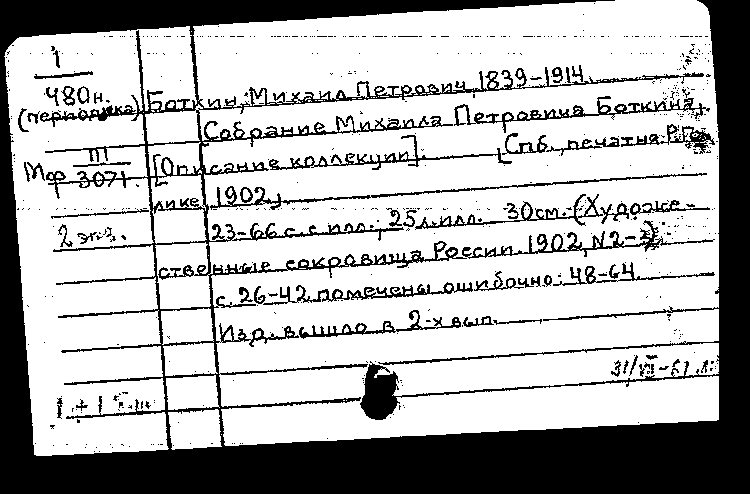 1
480н.
(периодика)
Мф III
3071.
2 экз.
Боткин, Михаил Петрович, 1839-1914.
Собрание Михаила Петровича Боткина,
[Описание коллекции]. [Спб., печатня Р. Го-
лике, 1902.]
23-66 с. с илл.; 25 л. илл. 30 см. (Художе-
ственные сокровища России. 1902, N 2-3)
с. 26-42 помечены ошибочно: 48-64.
Изд. вышло в 2-х вып.
31/VII-61
1+1